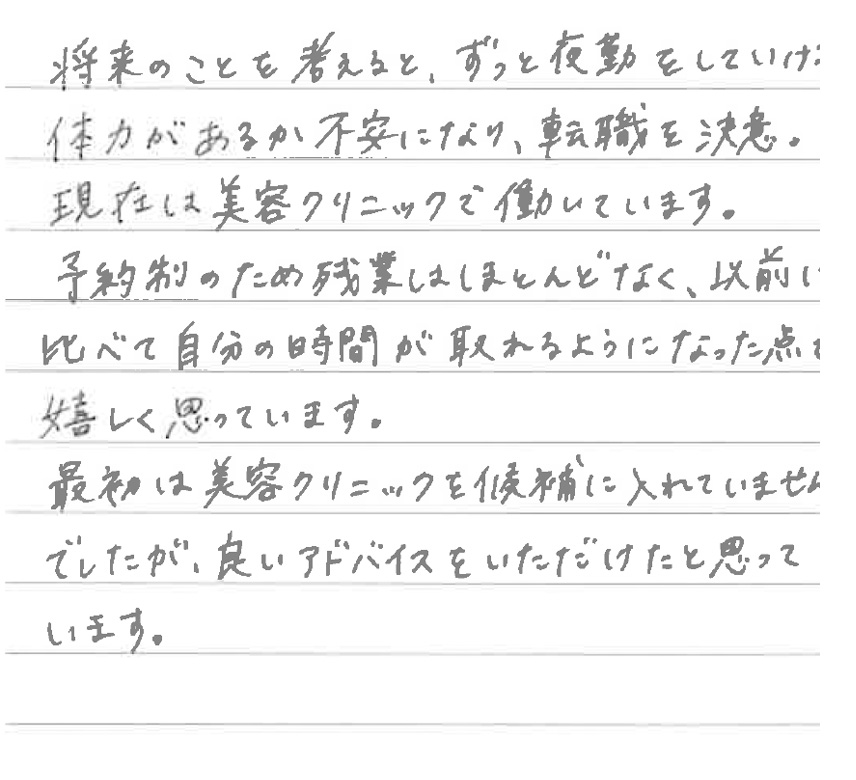 将来のことを考えると、ずっと夜勤をしていけ
体力があるか不安になり、転職を決意。
現在は美容クリニックで働いています。
予約制のため残業はほとんどなく、以前に
比べて自分の時間が取れるようになった点で
嬉しく思っています。
最初は美容クリニックを候補に入れていません
でしたが、良いアドバイスをいただけたと思って
います。